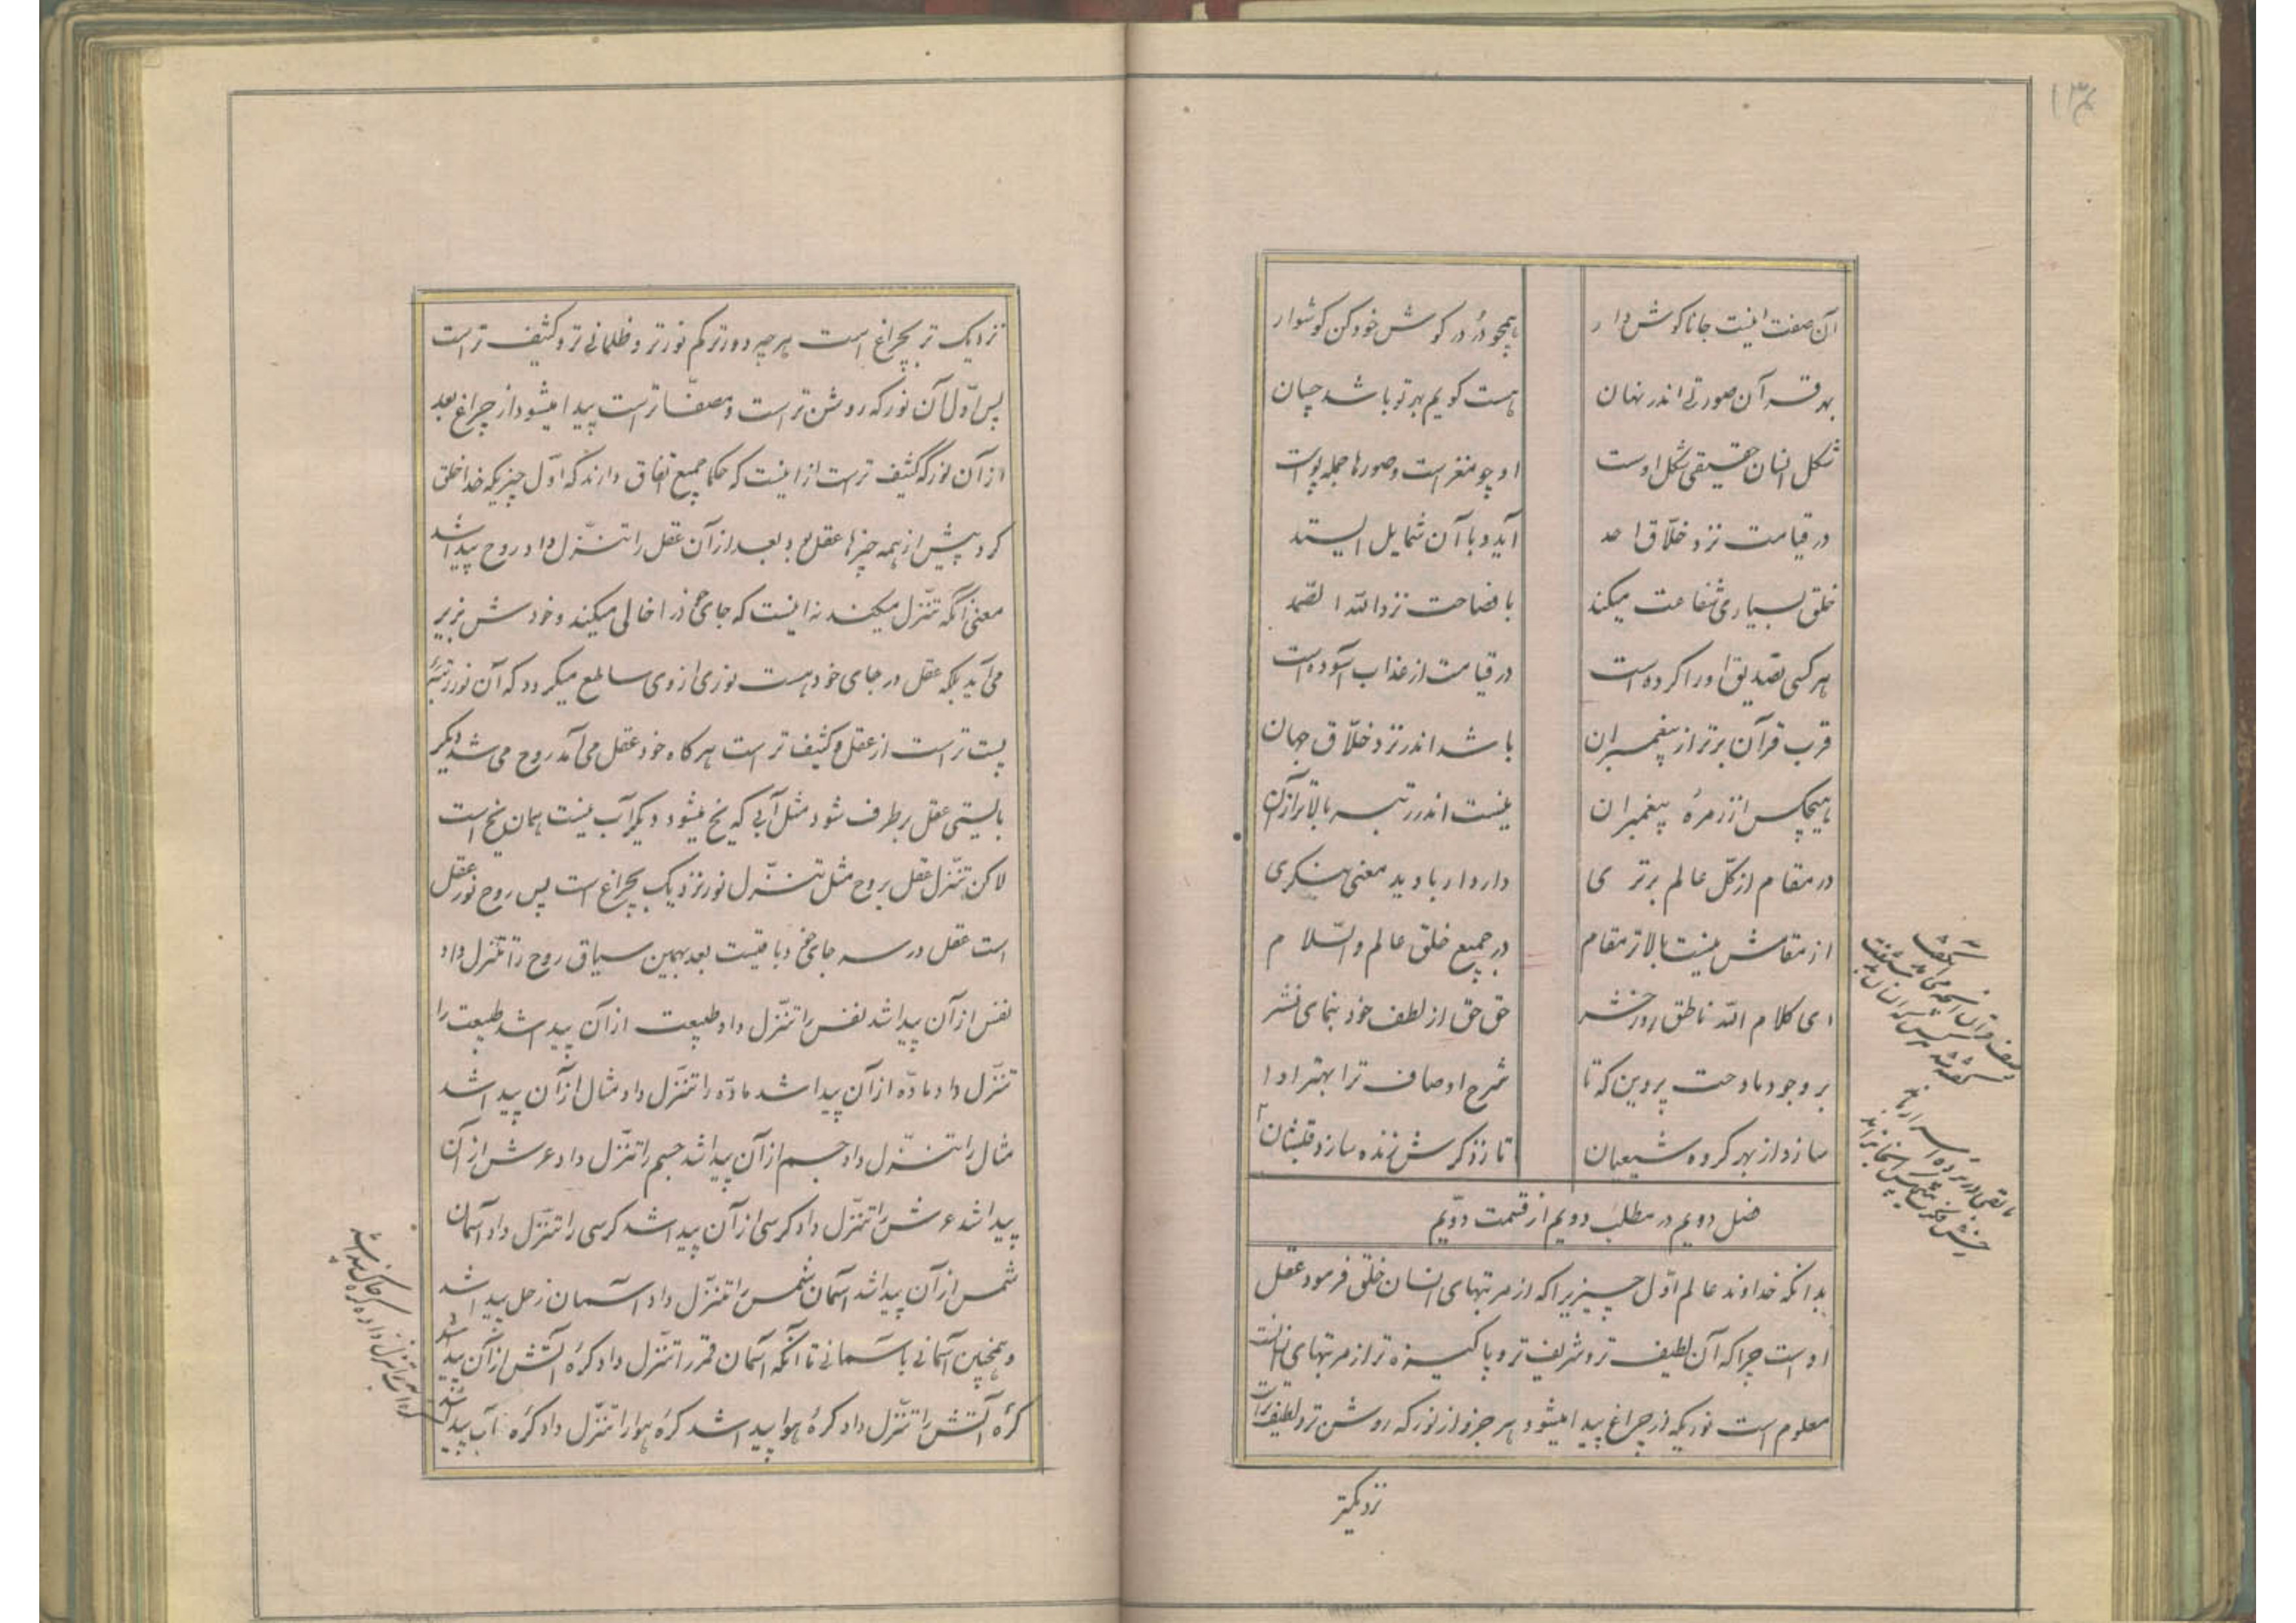 آن صفت اینست جانا کوش دار همچو دُر در کوش خود کن کوشوار
بهر قرآن صورتی اندر نهان هست کویم بهر تو باشد چسان
شکل انسان حقیقی شکل اوست او چو مغز است و صورها جمله پوست
در قیامت نزد خلّاق احد آید و با آن شمایل ایستد
خلق بسیاری شفاعت میکند با فصاحت نزد الله الصّمد
هر کسی تصدیق او را کرده است در قیامت از عذاب آسوده است
قرب قرآن برتر از پیغمبران باشد اندر نزد خلّاق جهان
هیچکس از زمرهٔ پیغمبران نیست اندر رتبه بالاتر از آن
در مقام از کلّ عالم برتری دارد ار با دید معنی بنکری
از مقامش نیست بالاتر مقام در جمیع خلق عالم والسّلام
ای کلام الله ناطق روز حشر حق حق از لطف خود بنمای نشر
بر وجود مادحت پروین که تا شرح اوصاف ترا بهتر ادا
سازد از بهر کروه شیعیان تا ز ذکرش زنده سازد قلبشان
فصل دویم در مطلب دویم از قسمت دویّم
بدانکه خداوند عالم اوّل چیزیرا که از مرتبهای انسان خلق فرمود عقل
اوست چرا که آن لطیف تر و شریف تر و پاکیزه تر از مرتبهای انسانست
معلوم است نوریکه از چراغ پیدا میشود هر جزو از نور که روشن تر و لطیف تر است
نزدیکتر
نزدیک تر بچراغ است هر چه دورتر کم نورتر و ظلمانی تر و کثیف تر است
پس اوّل آن نور که روشن تر است و مصفّا تر است پیدا میشود از چراغ بعد
از آن نور که کثیف تر است از اینست که حکما جمیع اتفاق دارند که اوّل چیزیکه خدا خلق
کرد پیش از همه چیزها عقل بود بعد از آن عقل را تنزّل داد روح پیدا شد
معنی آنکه تنزّل میکند نه اینست که جای خود را خالی میکند و خودش بزیر
می آید بلکه عقل در جای خود هست نوری از وی ساطع میکردد که آن نور رتبهٔ
پست تر است از عقل و کثیف تر است هر کاه خود عقل می آمد روح می شد دیکر
بایستی عقل بر طرف شود مثل آبی که یخ میشود دیکر آب نیست همان یخ است
لاکن تنزّل عقل بروح مثل تنزّل نور نزدیک بچراغ است پس روح نور عقل
است عقل در سر جای خود باقیست بعد بهمین سیاق روح را تنزّل داد
نفس از آن پیدا شد نفس را تنزّل داد طبیعت از آن پیدا شد طبیعت را
تنزّل داد مادّه از آن پیدا شد مادّه را تنزّل داد مثال از آن پیدا شد
مثال را تنزّل داد جسم از آن پیدا شد جسم را تنزّل داد عرش از آن
پیدا شد عرش را تنزّل داد کرسی از آن پیدا شد کرسی را تنزّل داد آسمان
شمس از آن پیدا شد آسمان شمس را تنزّل داد آسمان زحل پیدا شد
و همچنین آسمانی بآسمانی تا آنکه آسمان قمر را تنزّل داد کرهٔ آتش از آن پیدا شد
کرهٔ آتش را تنزّل داد کرهٔ هوا پیدا شد کرهٔ هوا را تنزّل داد کرهٔ آب پیدا شد
کرهٔ آب را تنزّل داد کرهٔ خاک پیدا شد